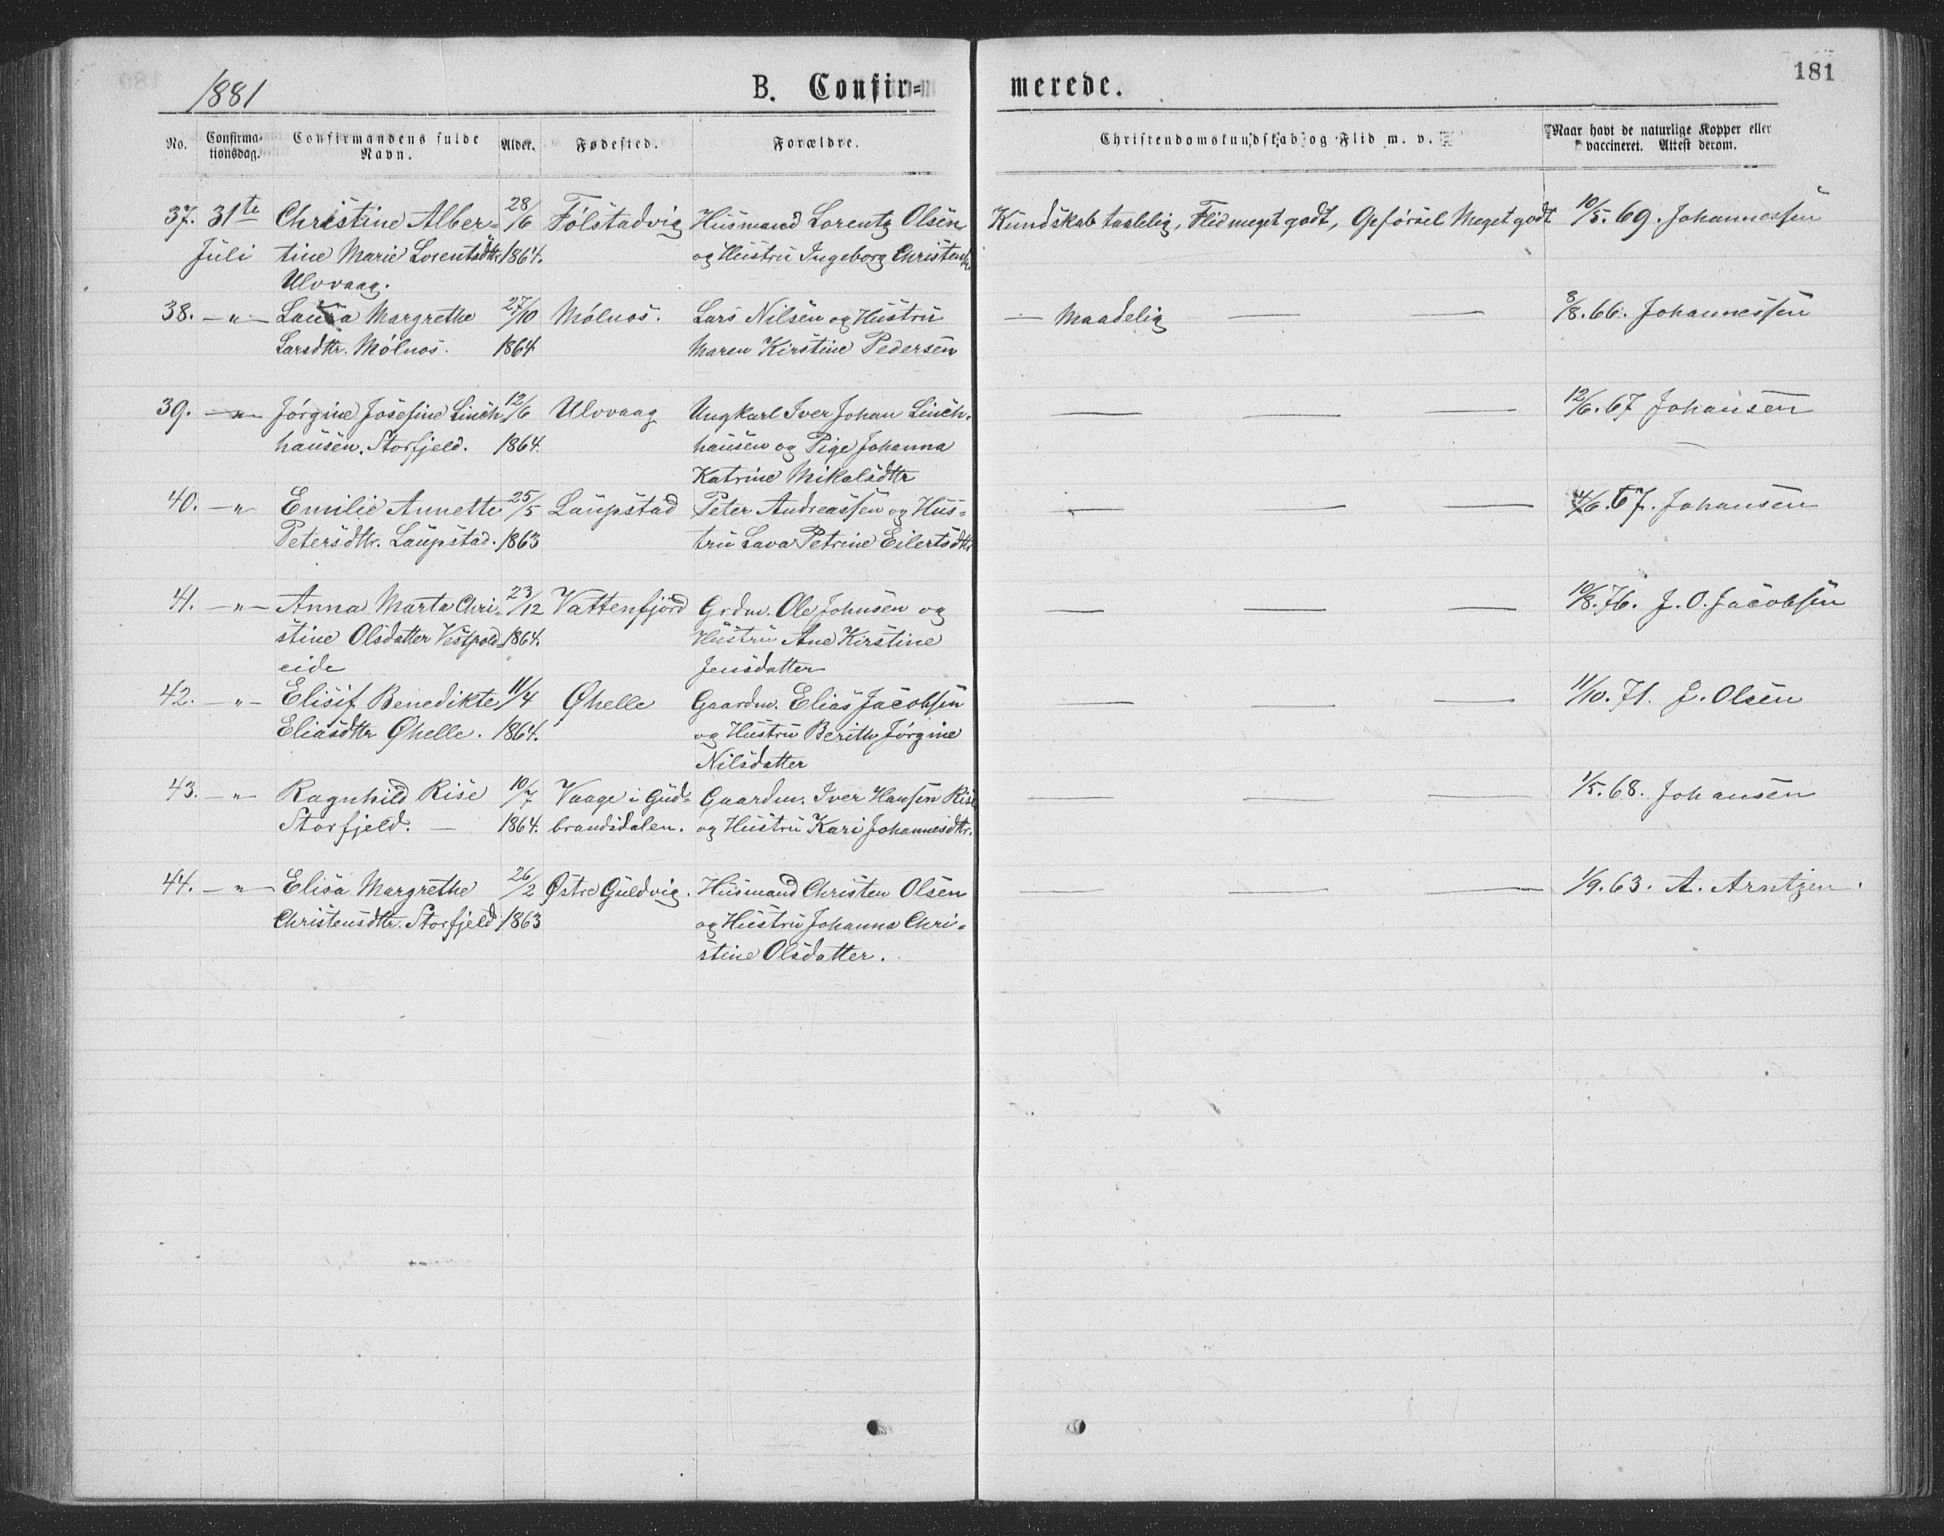 181
1881 B. Confir= merede.
No. Confirma-tionsdag. Confirmandens fulde Navn. Alder. Fødested. Forældre. Christendomskundskab og Flid m. v. Naar havt de naturlige Kopper eller vaccineret. Attest derom.
37. 31te Christine Alber= 28/6 Følstadvig Husmand Lorentz Olsen Kundskab taalelig, Flid meget godt, Opførsel Meget godt 10/5. 69. Johannessen
Juli tine Marie Lorentsdtr. 1864. og Hustru Ingeborg
Ulvvaag.
38. — " — Laura Margrethe 27/10 Mølnos. Lars Nilsen og Hustru — Maadelig — — 8/8. 66. Johannessen
Larsdtr. Mølnos. 1864 Maren Kirstine Pedersen
39. — " — Jørgine Josefine Linch= 12/6 Ulvvaag Ungkarl Iver Johan Linch= — — — 12/6. 67 Johansen
hausen. Storfjeld. 1864. hausen og Pige Johanna
Katrine Mikalsdtr
40. — " Emilie Annette 25/5 Laupstad Peter Andreassen og Hus= — — — 4/6. 67. Johansen
Petersdtr. Laupstad. 1863 tru Lava Petrine Eilertsdtr
41. — " — Anna Marta Chri= 23/12 Vattenfjord Grdm. Ole Johnsen og — — — 10/8. 76. J. O. Jacobsen
stine Olsdatter Vestpold= 1864. Hustru Ane Kirstine
eide Jensdatter
42. — " — Elisif Benedikte 11/4 Øhelle Gaardm. Elias Jacobsen — — — 11/10. 71. J. Olsen
Eliasdtr Øhelle. 1864. og Hustru Berith Jørgine
Nilsdatter
43. — " — Ragnhild Rise 10/7 Vaage i Gud= Gaardm. Iver Hansen Rise — — — 1/5. 68. Johansen
Storfjeld. — 1864. brandsdalen. og Hustru Kari Johannesdtr.
44. — " — Elisa Margrethe 26/2 Østre Guldvig. Husmand Christen Olsen — — — 1/9. 63. A. Arntzen.
Christensdtr. Storfjeld 1863 og Hustru Johanna Chri=
stine Olsdatter.